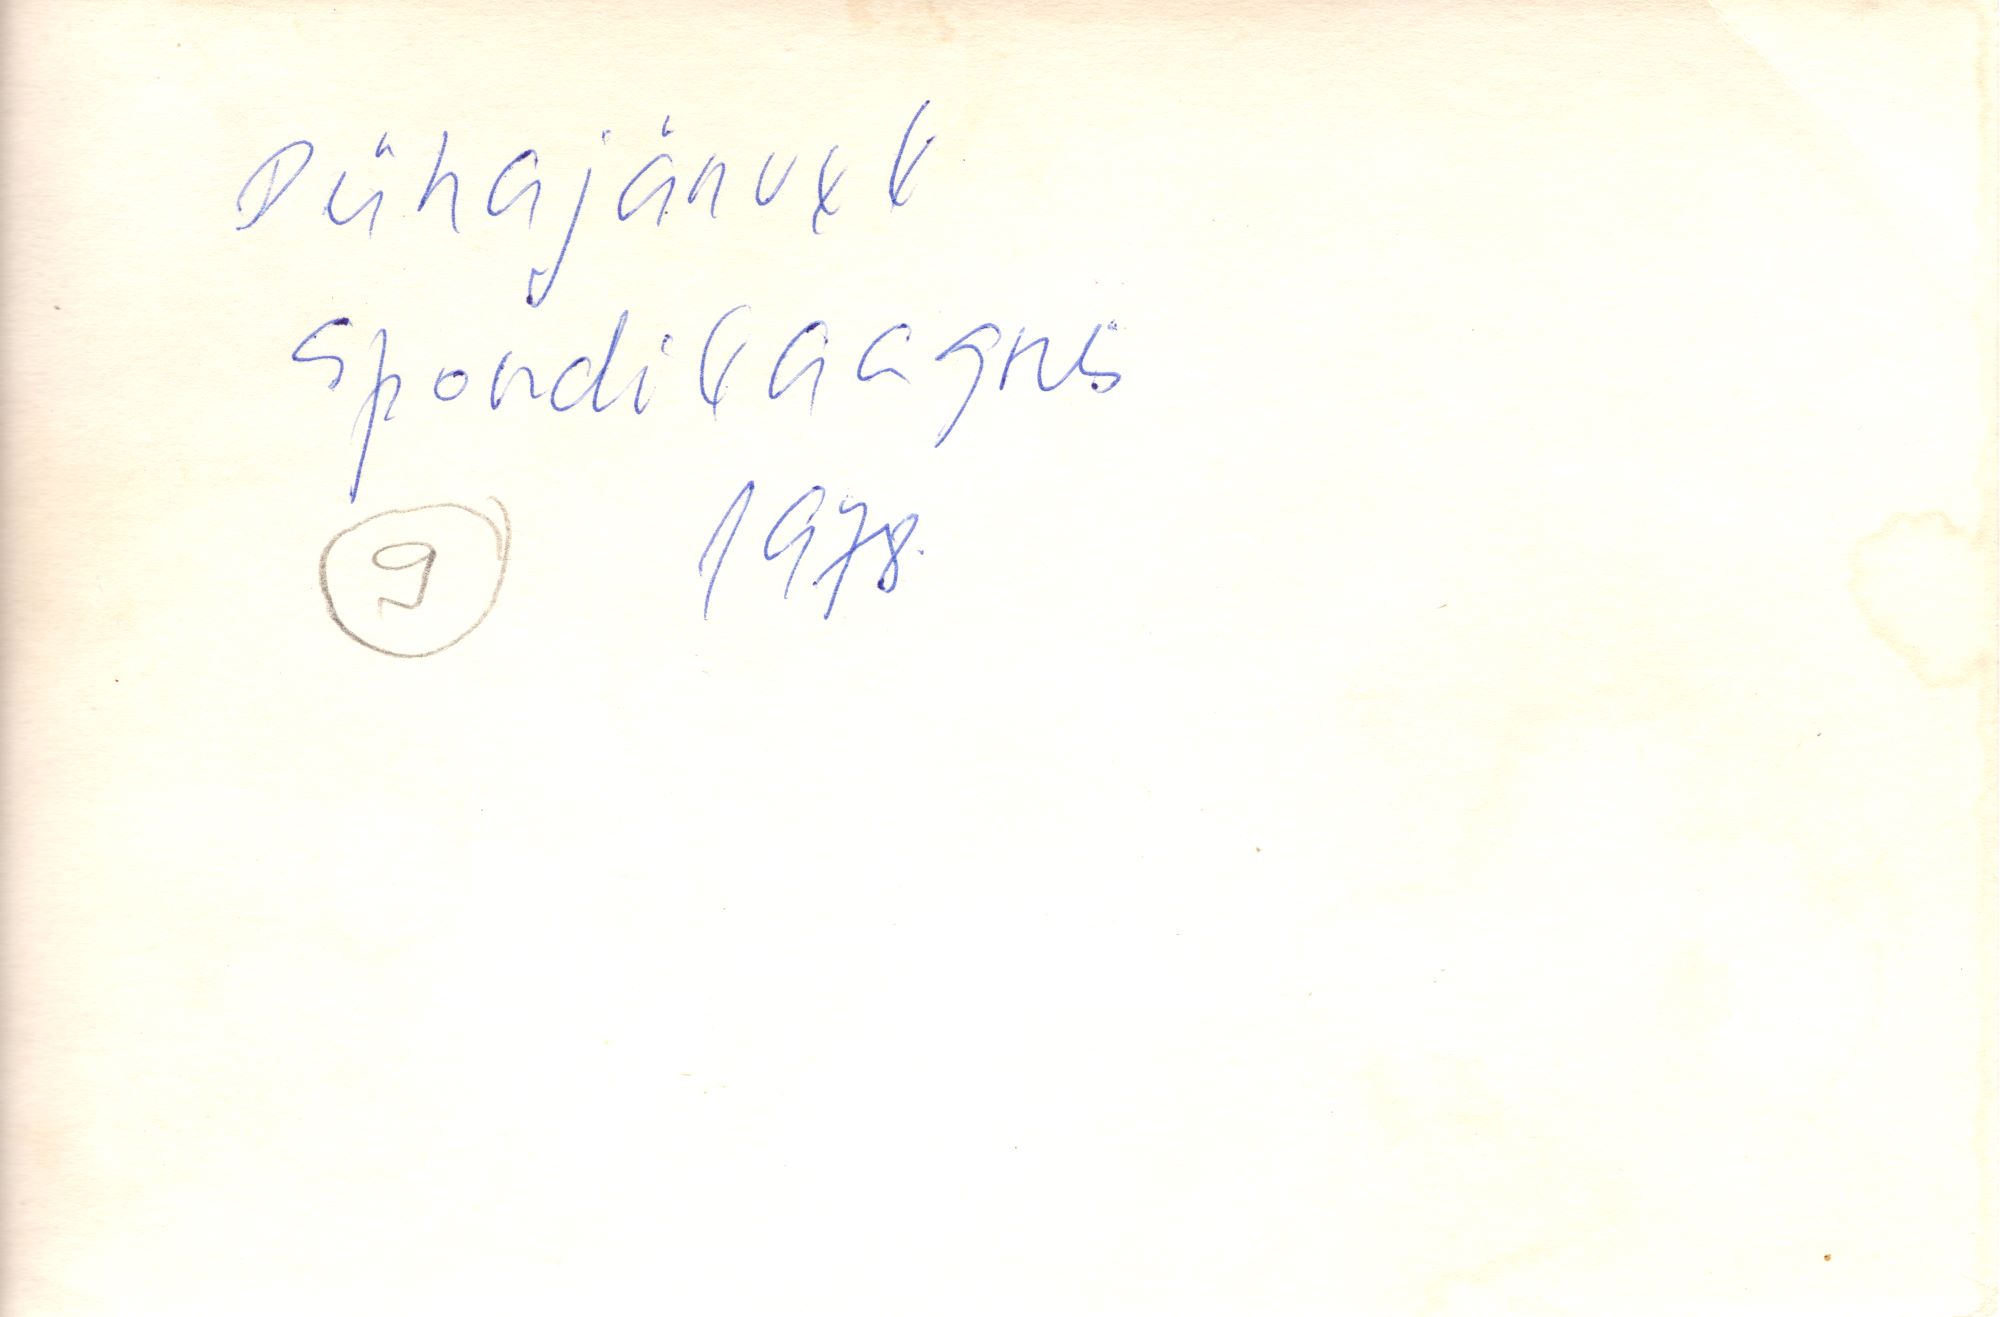 Pühajärvel
spordilaagris
9 1978.